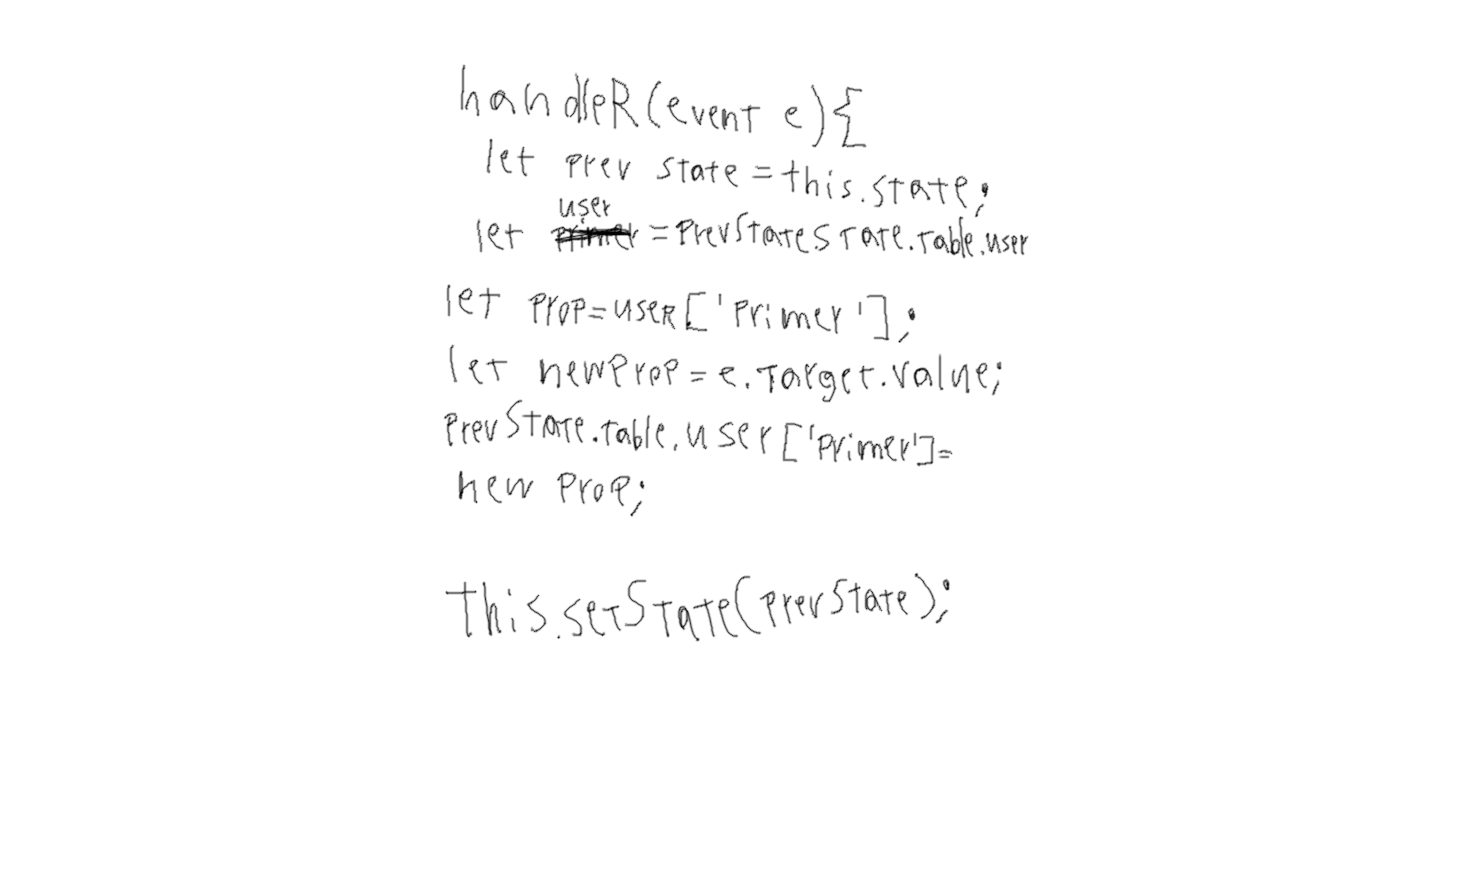 handleR(event e){
let prev state = this.state;
user
let primer = PrevStateState.table.user
let prop = useR['Primer'];
let newProp = e.Target.value;
PrevState.table.user['Primer']=
new Prop;
this.setState(prevState);